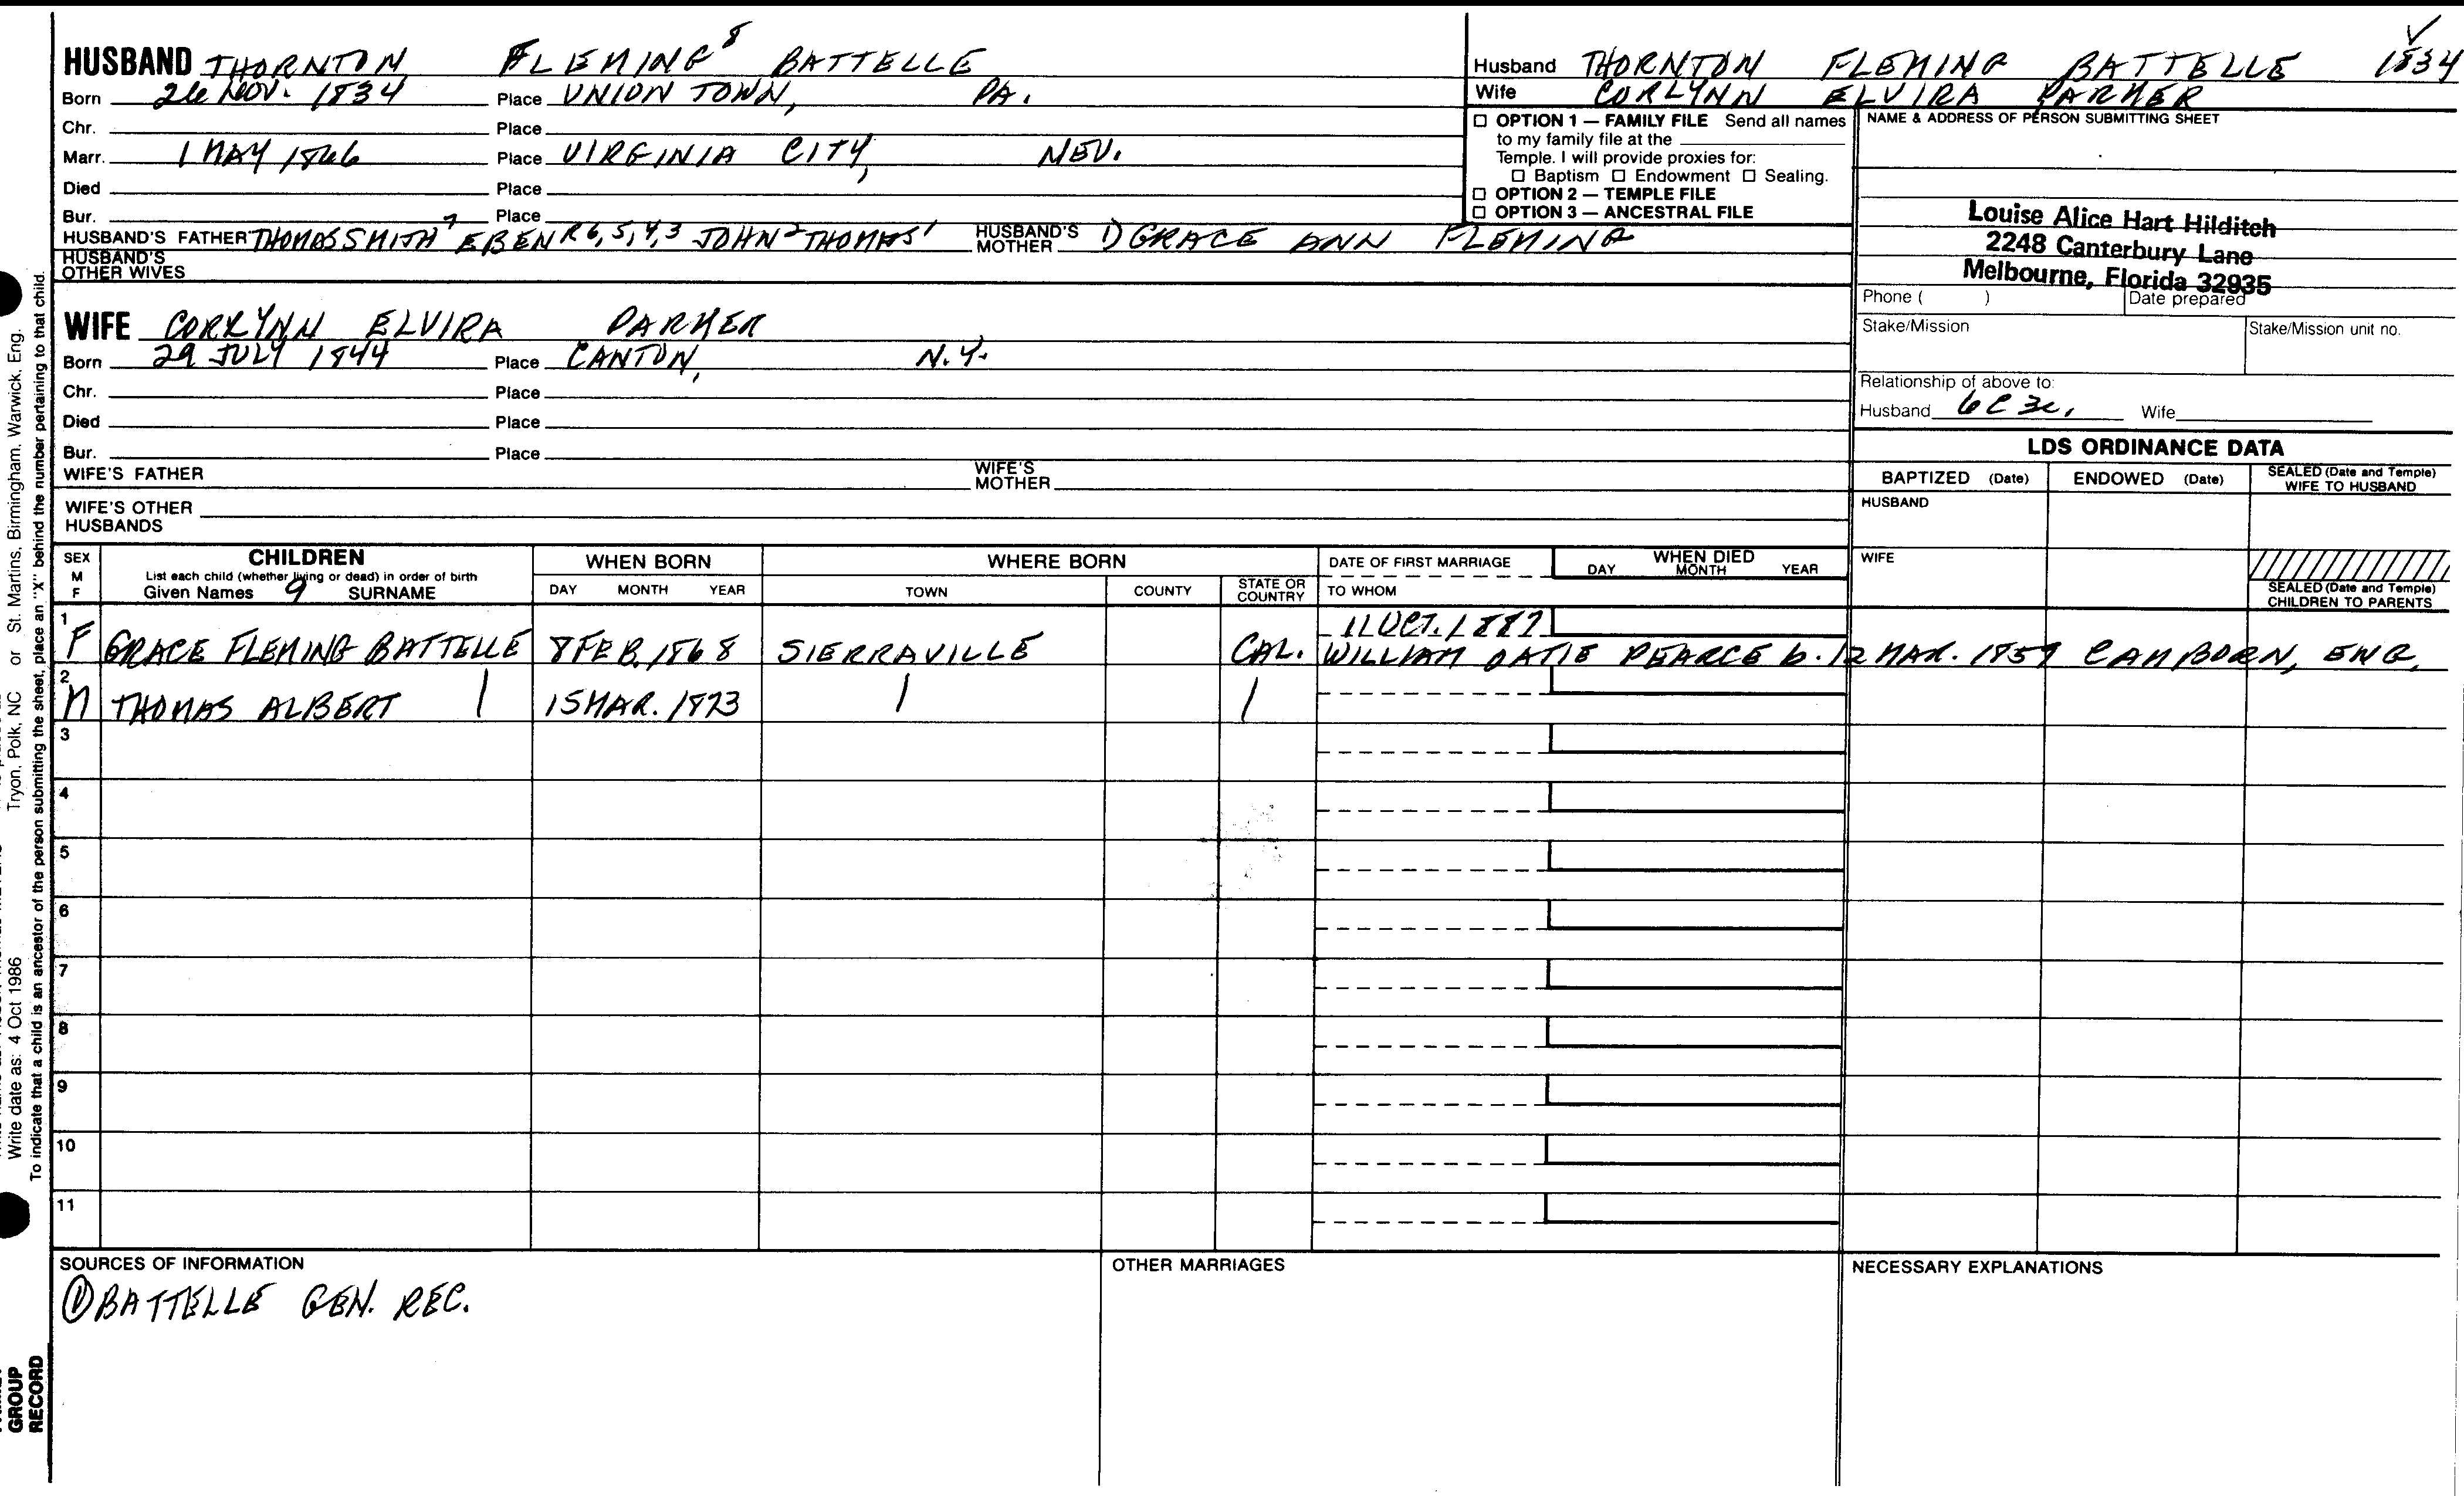 HUSBAND THORNTON FLEMING⁸ BATTELLE
Born 26 NOV. 1834 Place UNION TOWN, PA.
Chr. Place
Marr. 1 MAY 1866 Place VIRGINIA CITY, NEV.
Died Place
Bur. Place
HUSBAND'S FATHER THOMAS SMITH⁷ EBENR 6, 5, 4, 3 JOHN² THOMAS¹ HUSBAND'S MOTHER 1) GRACE ANN FLEMING
HUSBAND'S OTHER WIVES
WIFE CORLYNN ELVIRA PARMER
Born 29 JULY 1844 Place CANTON, N.Y.
Chr. Place
Died Place
Bur. Place
WIFE'S FATHER WIFE'S MOTHER
WIFE'S OTHER HUSBANDS
✓
Husband THORNTON FLEMING BATTELLE 1834
Wife CORLYNN ELVIRA PARMER
☐ OPTION 1 — FAMILY FILE Send all names
to my family file at the
Temple. I will provide proxies for:
☐ Baptism ☐ Endowment ☐ Sealing.
☐ OPTION 2 — TEMPLE FILE
☐ OPTION 3 — ANCESTRAL FILE
NAME & ADDRESS OF PERSON SUBMITTING SHEET
Louise Alice Hart Hilditch
2248 Canterbury Lane
Melbourne, Florida 32935
Phone ( ) Date prepared
Stake/Mission Stake/Mission unit no.
Relationship of above to:
Husband 6C 3r, Wife
LDS ORDINANCE DATA
BAPTIZED (Date) ENDOWED (Date) SEALED (Date and Temple) WIFE TO HUSBAND
HUSBAND
WIFE
SEALED (Date and Temple) CHILDREN TO PARENTS
SEX M F
CHILDREN
List each child (whether living or dead) in order of birth
Given Names 9 SURNAME
WHEN BORN
DAY MONTH YEAR
WHERE BORN
TOWN COUNTY STATE OR COUNTRY
DATE OF FIRST MARRIAGE
TO WHOM
WHEN DIED
DAY MONTH YEAR
1 F GRACE FLEMING BATTELLE 8 FEB. 1868 SIERRAVILLE CAL. 11 OCT. 1887
WILLIAM PEARCE b. 12 MAR. 1857 CAMBORN, ENG.
2 M THOMAS ALBERT | 15 MAR. 1873 | |
3
4
5
6
7
8
9
10
11
SOURCES OF INFORMATION
① BATTELLE GEN. REC.
OTHER MARRIAGES
NECESSARY EXPLANATIONS
St. Martins, Birmingham, Warwick, Eng.
or
Tryon, Polk, NC
Write date as: 4 Oct 1986
To indicate that a child is an ancestor of the person submitting the sheet, place an "X" behind the number pertaining to that child.
GROUP
RECORD